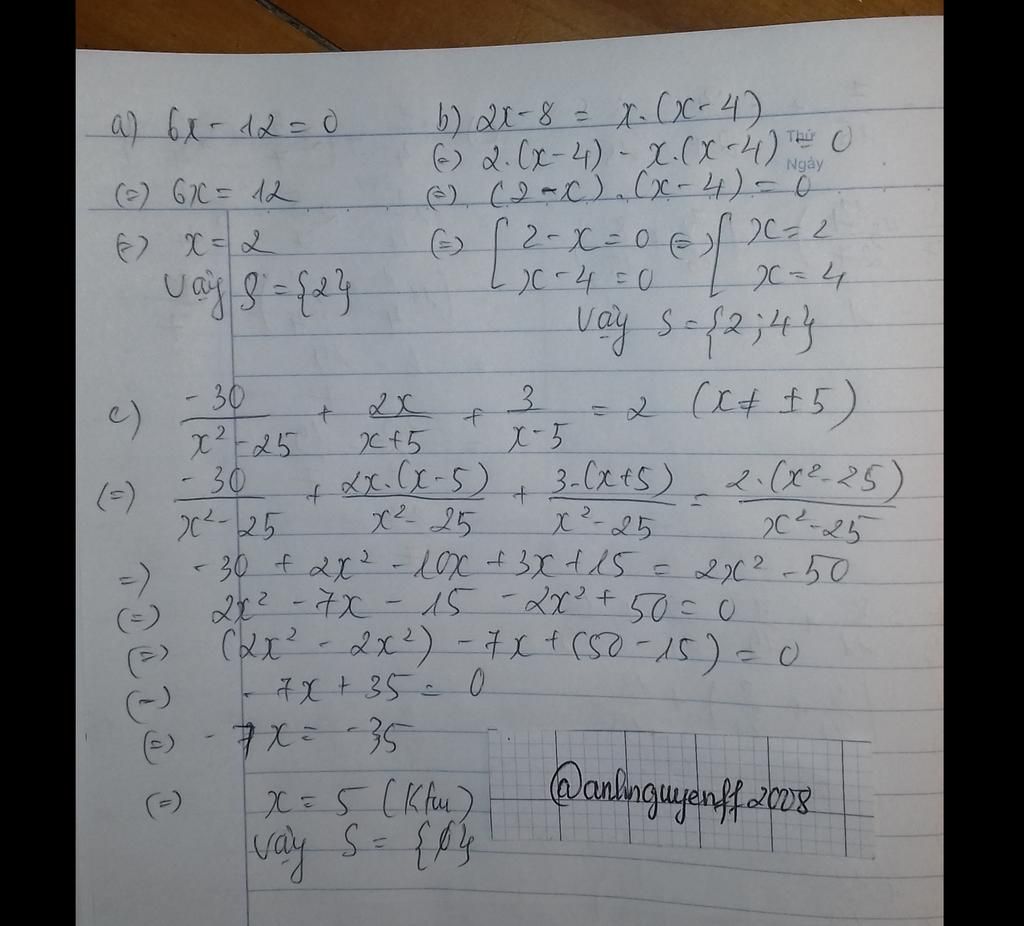 a) 6x - 12 = 0
(=) 6x = 12
(=) x = 2
Vậy S = {2}
b) 2x - 8 = x.(x - 4)
(=) 2.(x - 4) - x.(x - 4) = 0
Thứ
Ngày
(=) (2 - x).(x - 4) = 0
(=) [ 2 - x = 0 (=) [ x = 2
x - 4 = 0 x = 4
Vậy S = {2; 4}
c) -30/(x² - 25) + 2x/(x + 5) + 3/(x - 5) = 2 (x ≠ ±5)
(=) -30/(x² - 25) + 2x.(x - 5)/(x² - 25) + 3.(x + 5)/(x² - 25) = 2.(x² - 25)/(x² - 25)
=) -30 + 2x² - 10x + 3x + 15 = 2x² - 50
(=) 2x² - 7x - 15 - 2x² + 50 = 0
(=) (2x² - 2x²) - 7x + (50 - 15) = 0
(=) -7x + 35 = 0
(=) -7x = -35
(=) x = 5 (Ktm)
Vậy S = {∅}
@anhnguyenff2008